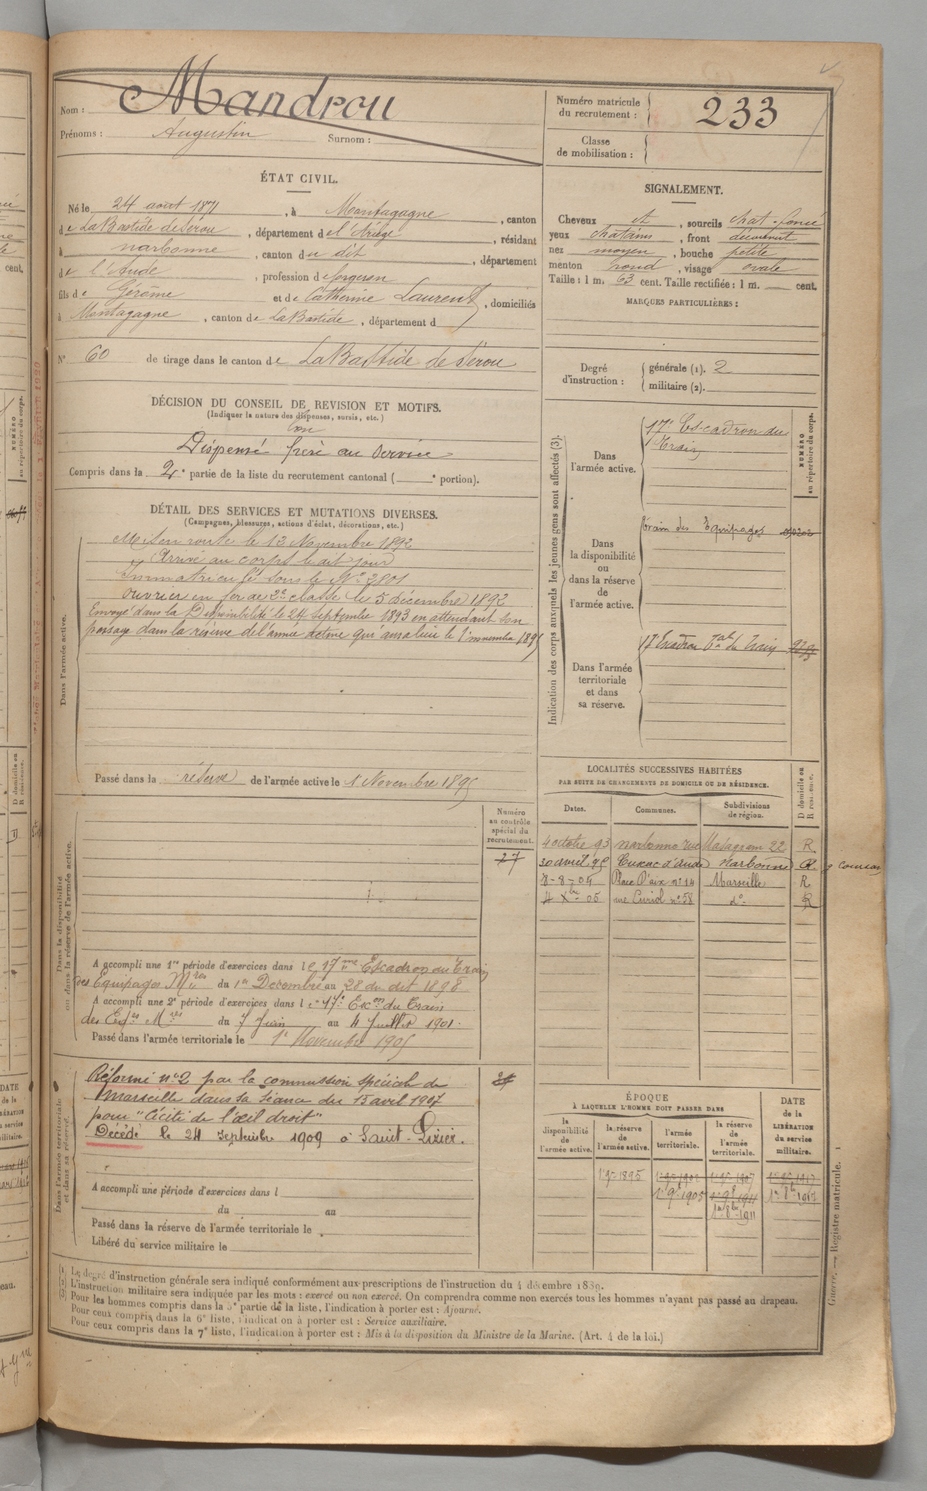 Nom : Mandrou
Prénoms : Augustin Surnom :
Numéro matricule du recrutement : 233
Classe de mobilisation :
ÉTAT CIVIL.
Né le 24 aout 1871, à Montagagne, canton
de LaBastide de Sérou, département de l'Ariège, résidant
à narbonne, canton du dit, département
de l'Aude, profession de forgeron
fils de Gérôme et de Catherine Laurent, domiciliés
à Montagagne, canton de LaBastide, département d
N° 60 de tirage dans le canton de LaBastide de Sérou
DÉCISION DU CONSEIL DE REVISION ET MOTIFS.
(Indiquer la nature des dispenses, sursis, etc.)
Bon
Dispensé frère au service
Compris dans la 2e partie de la liste du recrutement cantonal ( e portion).
DÉTAIL DES SERVICES ET MUTATIONS DIVERSES.
(Campagnes, blessures, actions d'éclat, décorations, etc.)
Dans l'armée active.
Mis en route le 13 Novembre 1892
Arrivé au corps le dit jour
Immatriculé sous le N° 2801
Ouvrier en fer de 2e classe le 5 décembre 1892
Envoyé dans la Disponibilité le 24 Septembre 1893 en attendant son
passage dans la réserve de l'armée active qui aura lieu le 1 novembre 1895
Passé dans la réserve de l'armée active le 1 Novembre 1895
Dans la disponibilité ou dans la réserve de l'armée active.
Numéro au contrôle spécial du recrutement.
27
A accompli une 1re période d'exercices dans le 17me Escadron du Train
des Equipages Mres du 1er Décembre au 28 du dit 1898
A accompli une 2e période d'exercices dans le 17e Escon du Train
des Eqes Mres du 7 Juin au 4 Juillet 1901.
Passé dans l'armée territoriale le 1e Novembre 1905
Dans l'armée territoriale et dans sa réserve.
Réformé n°2 par la commission spéciale de
Marseille dans sa séance du 13 avril 1907
pour "Cécité de l'œil droit"
Décédé le 24 septembre 1909 à Saint-Lizier.
A accompli une période d'exercices dans l
du au
Passé dans la réserve de l'armée territoriale le
Libéré du service militaire le
SIGNALEMENT.
Cheveux et, sourcils chat. foncé
yeux chatains, front découvert
nez moyen, bouche petite
menton rond, visage ovale
Taille : 1 m. 63 cent. Taille rectifiée : 1 m. cent.
MARQUES PARTICULIÈRES :
Degré d'instruction : générale (1). 2
militaire (2).
Indication des corps auxquels les jeunes gens sont affectés (3).
NUMÉRO au répertoire du corps.
Dans l'armée active.
17e Escadron du
Train
Dans la disponibilité ou dans la réserve de l'armée active.
Train des Equipages
Dans l'armée territoriale et dans sa réserve.
17 Escadron Tal du Train
LOCALITÉS SUCCESSIVES HABITÉES
PAR SUITE DE CHANGEMENTS DE DOMICILE OU DE RÉSIDENCE.
Dates. Communes. Subdivisions de région. D domicile ou R résidence.
4 octobre 93 narbonne rue 22 R
30 avril 95 Cuxac d'aude Narbonne
8-8-04 Place d'aix n° 14 Marseille R
4 Xbre 05 n° 58 do R
ÉPOQUE
À LAQUELLE L'HOMME DOIT PASSER DANS
la disponibilité de l'armée active. la réserve de l'armée active. l'armée territoriale. la réserve de l'armée territoriale. DATE de la LIBÉRATION du service militaire.
1e 9bre 1895
1e 9e 1905 1e 9e 1911
1911
(1) Le degré d'instruction générale sera indiqué conformément aux prescriptions de l'instruction du 4 décembre 1889.
(2) L'instruction militaire sera indiquée par les mots : exercé ou non exercé. On comprendra comme non exercés tous les hommes n'ayant pas passé au drapeau.
(3) Pour les hommes compris dans la 5e partie de la liste, l'indication à porter est : Ajourné.
Pour ceux compris dans la 6e liste, l'indication à porter est : Service auxiliaire.
Pour ceux compris dans la 7e liste, l'indication à porter est : Mis à la disposition du Ministre de la Marine. (Art. 4 de la loi.)
Guerre. — Registre matricule. 1